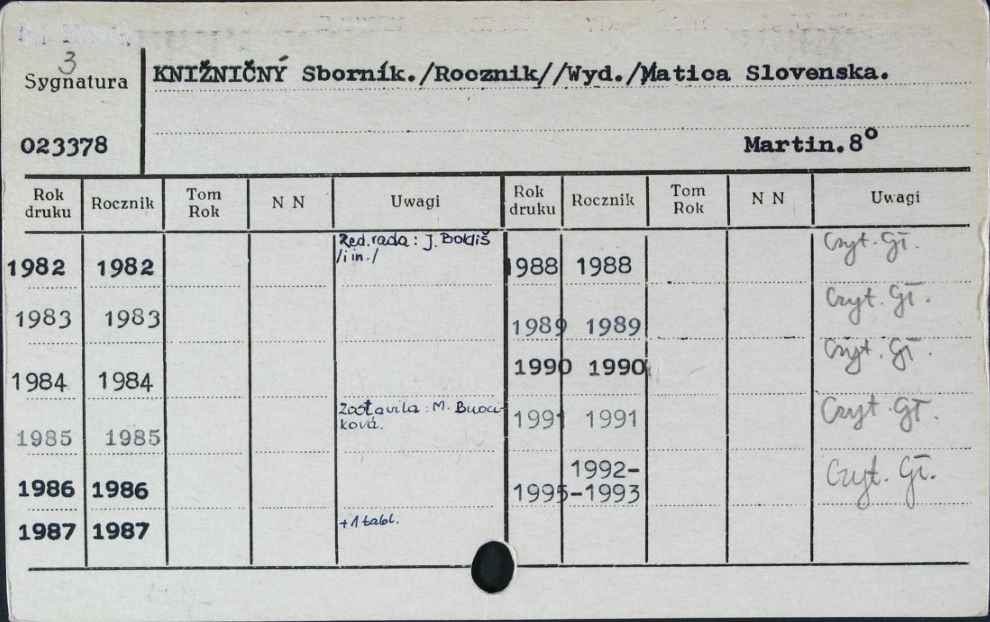 3
Sygnatura
KNIŽNIČNÝ Sborník./Rocznik//Wyd./Matica Slovenska.
023378
Martin.8°
Rok druku Rocznik Tom Rok N N Uwagi Rok druku Rocznik Tom Rok N N Uwagi
1982 1982 Red.rada: J. Boldiš /i in./
1983 1983
1984 1984
1985 1985 Zostavila: M.
1986 1986
1987 1987 +1 tabl.
1988 1988 Czyt. Gł.
1989 1989 Czyt. Gł.
1990 1990 Czyt. Gł.
1991 1991 Czyt. Gł.
1992-
1995-1993 Czyt. Gł.